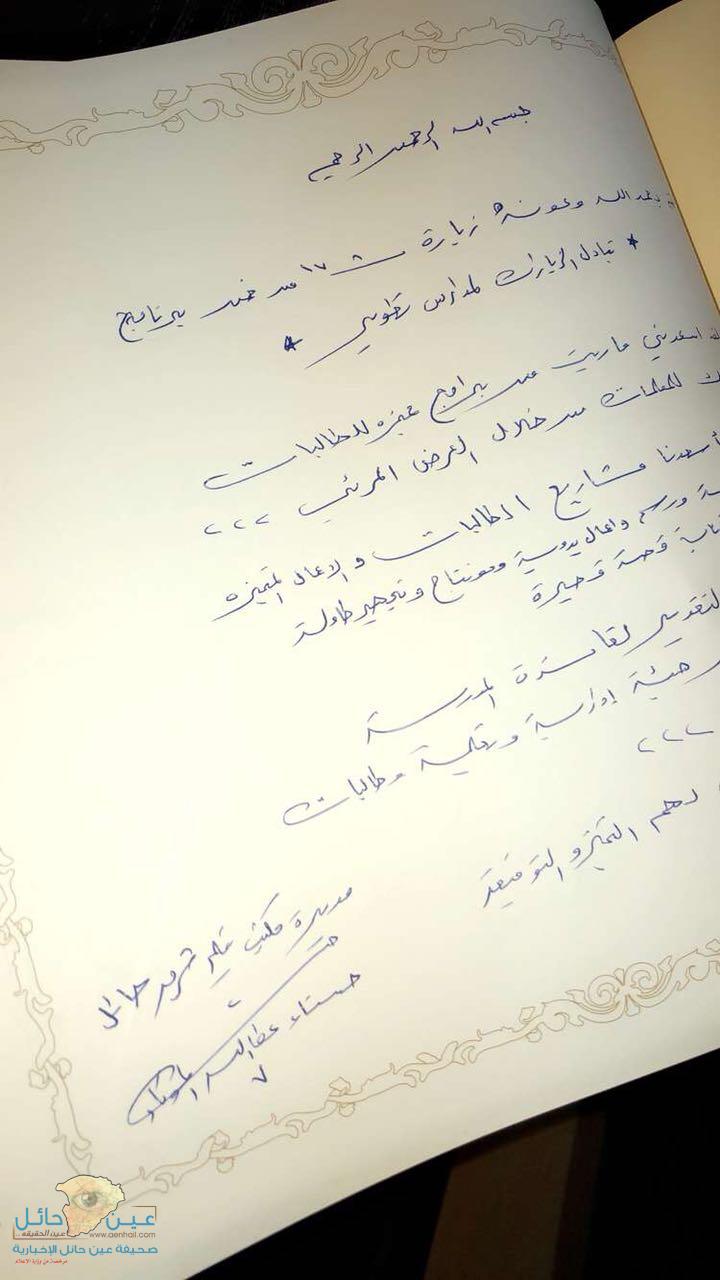 بسم الله الرحمن الرحيم
بحمد الله وعونه زيارة ث ١٧ من ضمن برنامج
* تبادل الزيارات لمدارس تطوير *
اسعدني مارايت من برامج مميزه للطالبات
للمعلمات من خلال العرض المرئي ٢٢٢
أسعدنا مشاريع الطالبات والاعمال المتميزه
ورسم واعمال يدوية ومونتاج وتجهيز طاولة
قصة قصيرة
التقدير لقائدة المدرسة
هيئة إدارية وتعليمية وطالبات
٢٢٢
لهم التميز والتوفيق
مديرة مكتب تعليم شرق حائل
حسناء عطاالله
عين حائل
عين الحقيقة
www.aenhail.com
صحيفة عين حائل الإخبارية
مرخصة من وزارة الاعلام